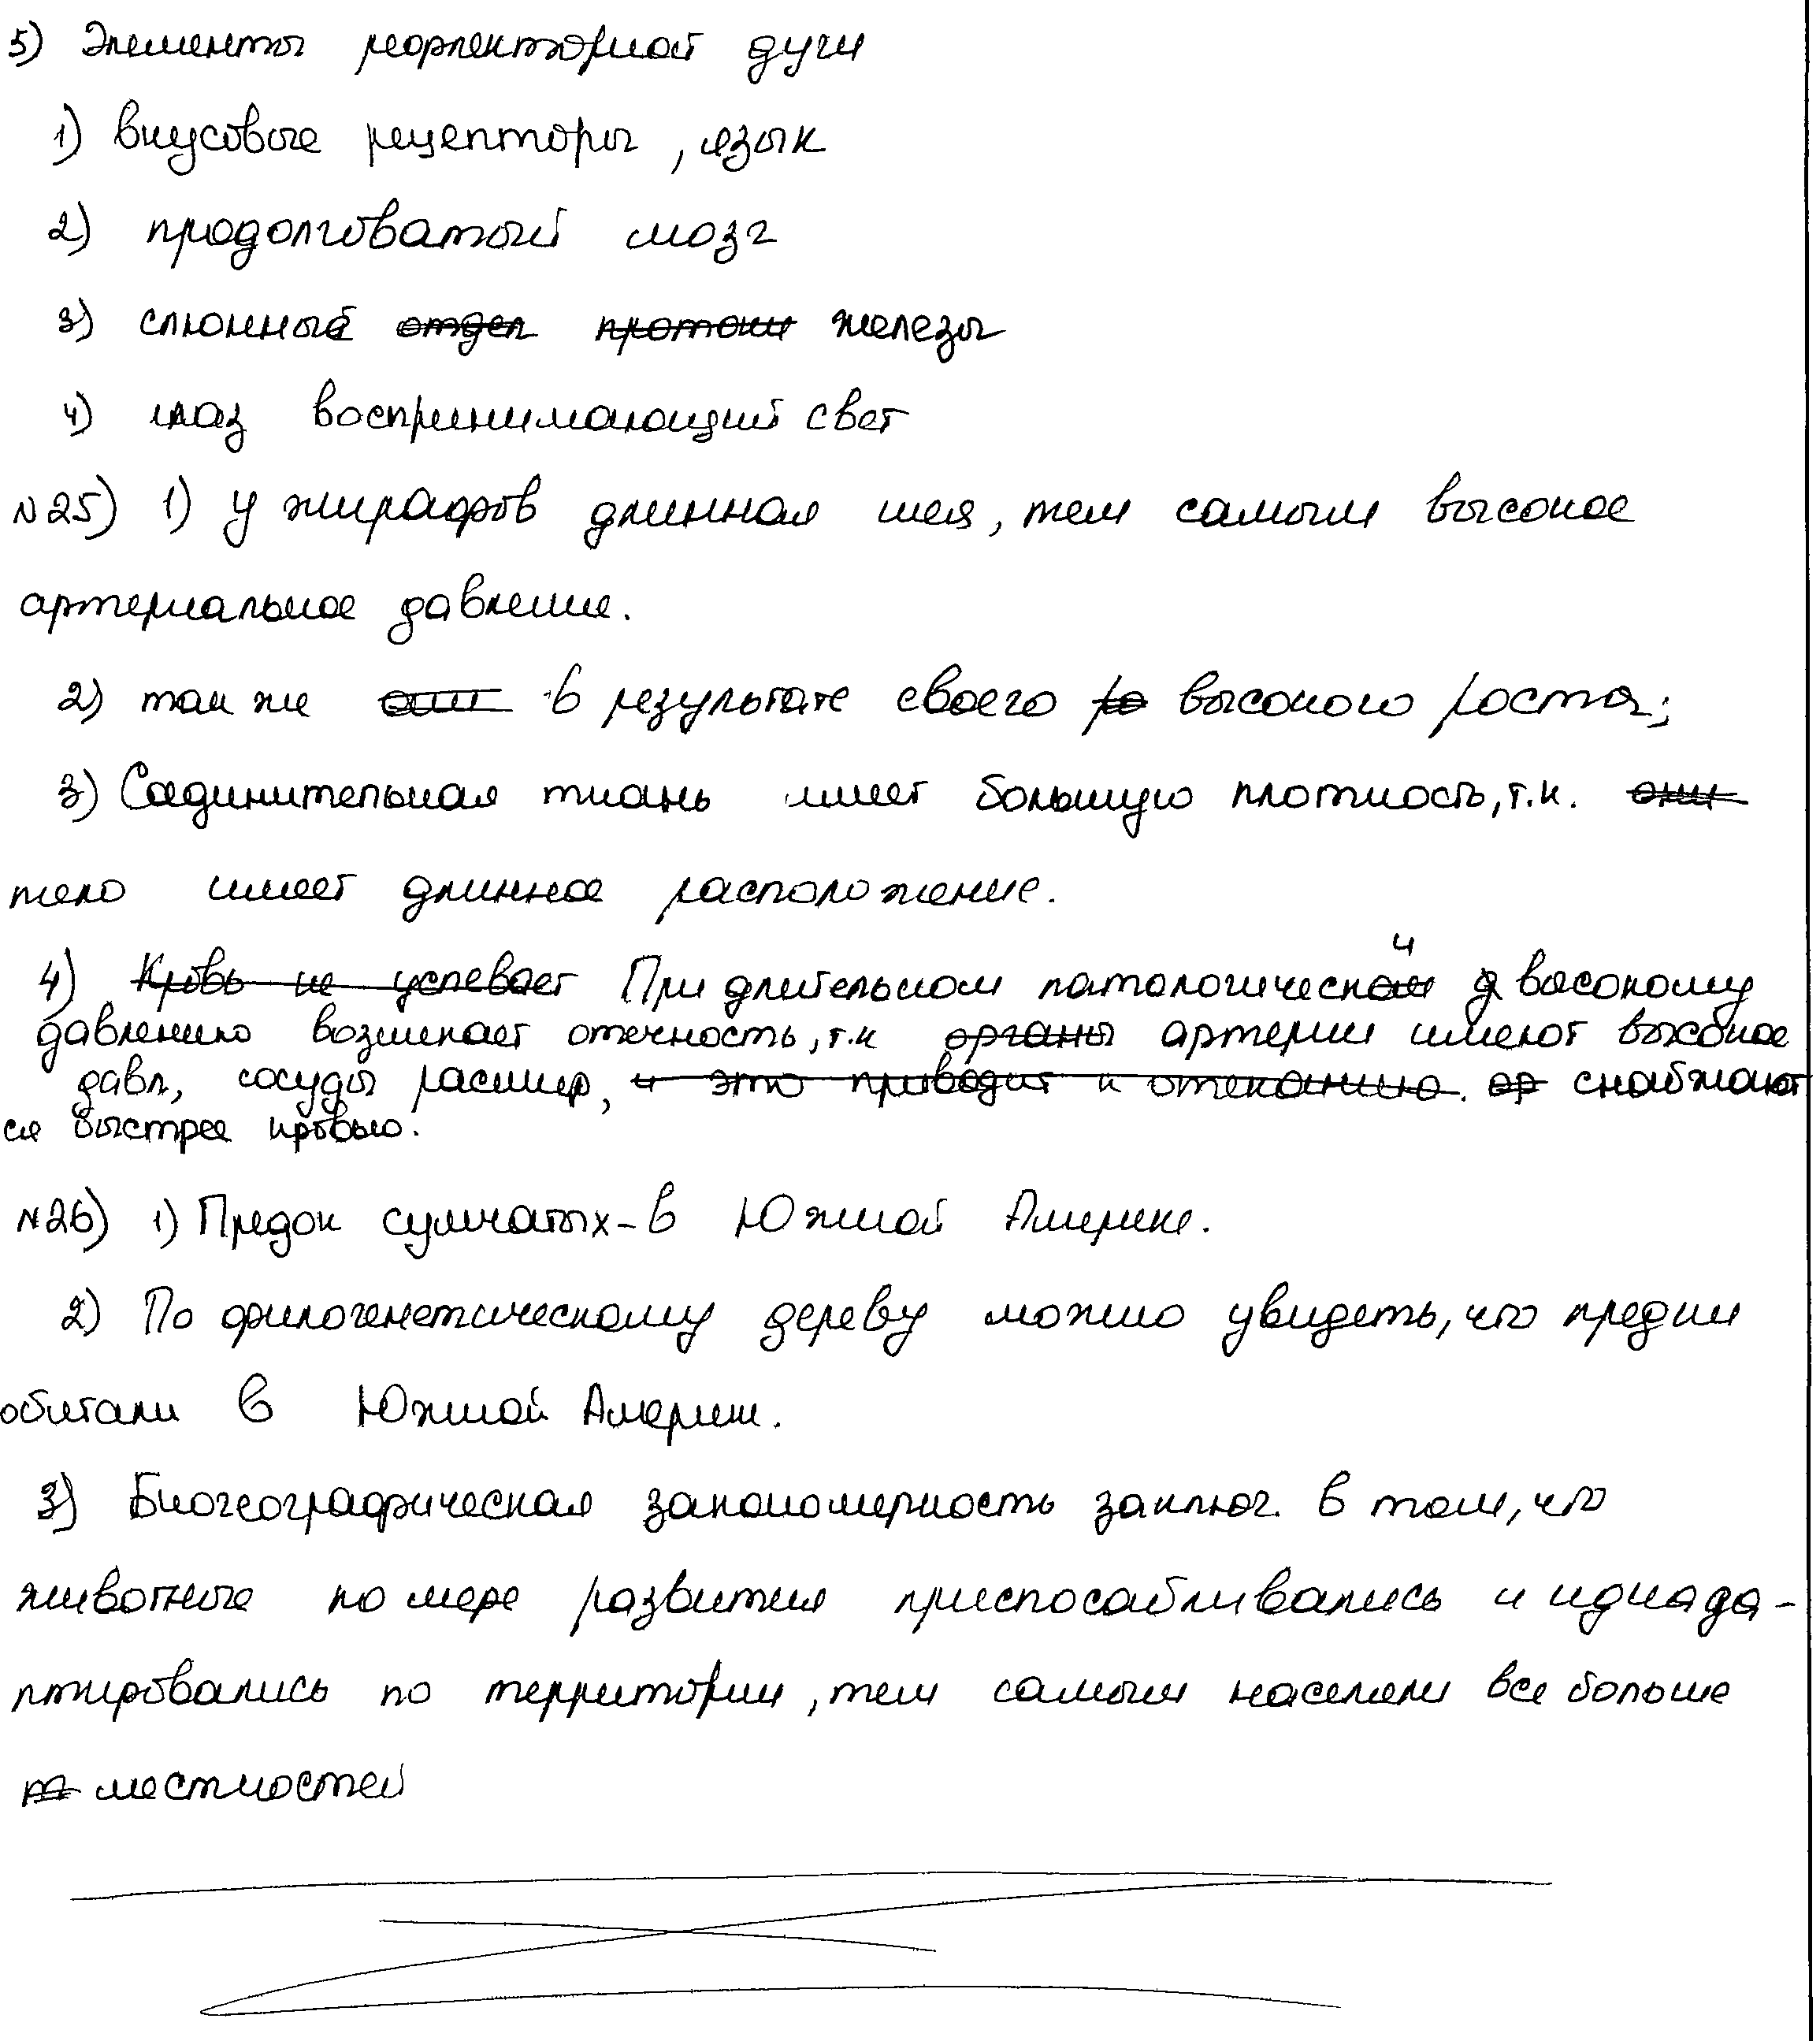 5) Элементы рефлекторной дуги
1) вкусовые рецепторы, язык
2) продолговатый мозг
3) слюнный отдел протоки железы
4) глаз воспринимающий свет
№25) 1) у жирафов длинная шея, тем самым высокое
артериальное давление.
2) так же они в результате своего ро высокого роста;
3) Соединительная ткань имеет большую плотность, т.к. они
тело имеет длинное расположение.
4) Кровь не успевает При длительном патологической и высокому
давлению возникает отечность, т.к органы артерии имеют высокое
давл, сосуды расшир, и это приводит к отеканию. ор снабжают
ся быстрее кровью.
№26) 1) Предок сумчатых - в Южной Америке.
2) По филогенетическому дереву можно увидеть, что предки
обитали в Южной Америки.
3) Биогеографическая закономерность заключ. в том, что
животные по мере развития приспосабливались и идиада-
птировались по территории, тем самым населяли все больше
местностей